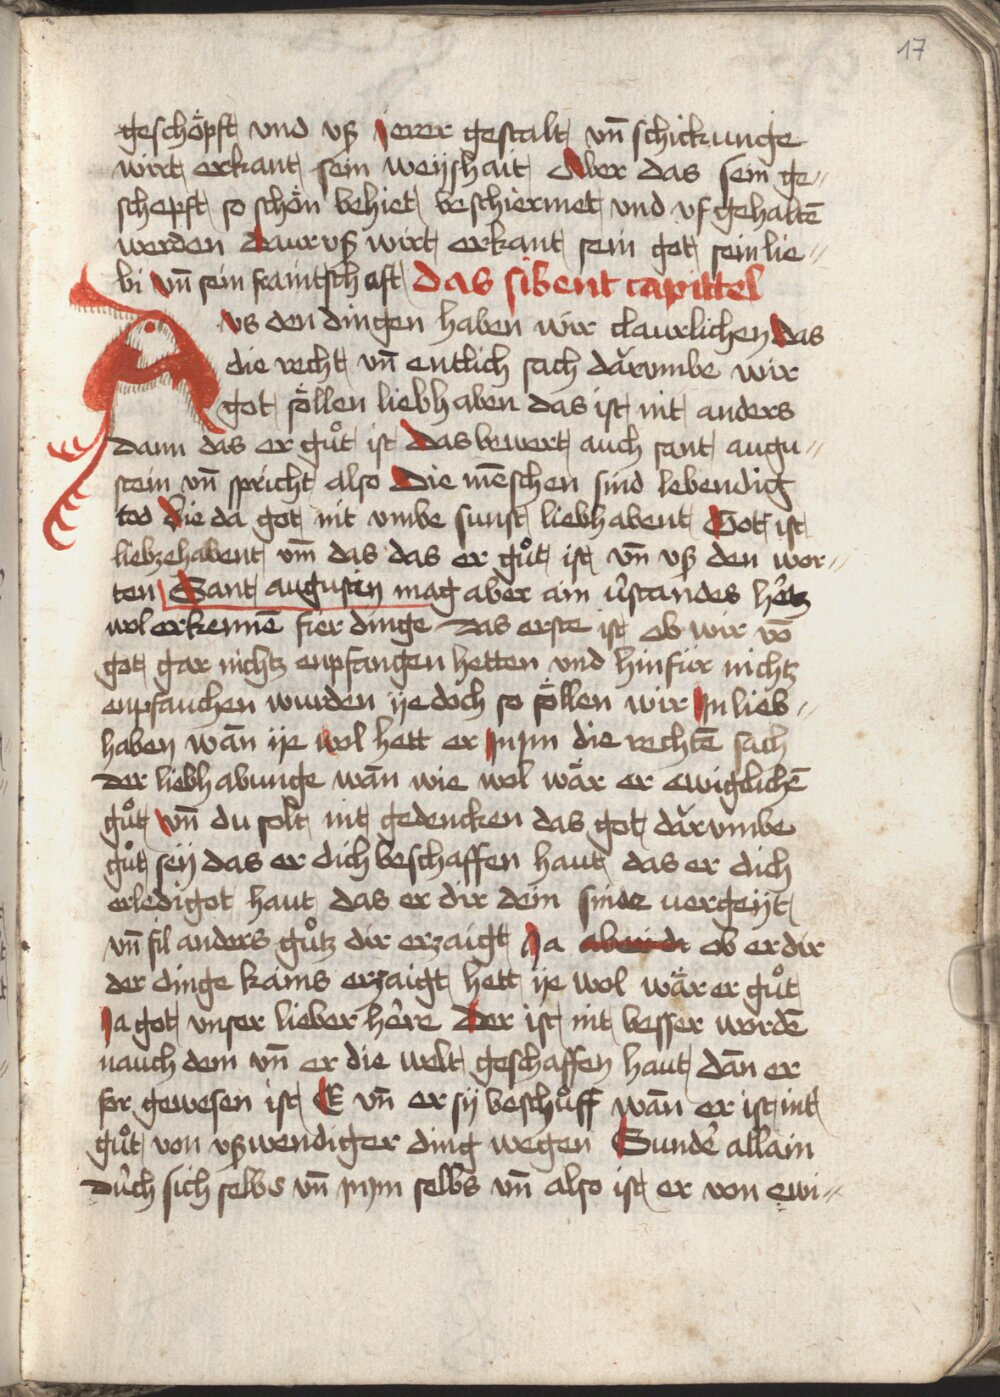 17
geschöpft und uß ierer gestalt vn̄ schickunge
wirt erkant sein weijshait Aber das sein ge〃
schepft so schön behiet beschiermet und uf gehaltē
werden Daur uß wirt erkant sein got sein lie〃
bi vn̄ sein fraintschaft das sibent capittel
Aus den dingen haben wir claurlichen das
die recht vn̄ entlich sach darumbe wir
got söllen liebhaben das ist nit anders
dann das er gůt ist Das bewert auch sant augu〃
stein vn̄ spricht also Die mēschen sind lebendig
tod die da got nit umbe sunst liebhabent Got ist
liebzehabent um̄ das das er gůt ist vn̄ uß den wor〃
ten Sant augustin mag aber ain ůstandes hertz
wol erkennē fier dinge Das erste ist ob wir vō
got gar nichtz enpfangen hetten und hinfür nichtz
enpfauchen wurden ije doch so söllen wir In lieb〃
haben wān ije wol hett er Inym die rechtē sach
der liebhabunge wān wie wol wär er ewiglichē
gůt vn̄ du solt nit gedencken das got darumbe
gůt seij das er dich beschaffen haut das er dich
erledigot haut das er dir dein sind vergeijt
vn̄ fil anders gůtz dir erzaigt Ja ob er dir
der dinge kains erzaigt hett ije wol wär er gůt
Ja got vnser lieber here Der ist nit besser wordē
nauch dem vn̄ er die welt geschaffen haut dān er
for gewesen ist E vn̄ er sij beschůff wān er ist nit
gůt von ußwendiger ding wegen Sunder allain
durch sich selbs vn̄ inym selbs vn̄ also ist er von ewi〃